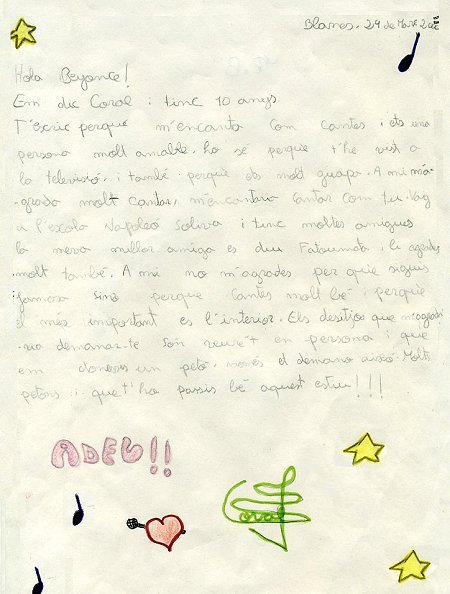 Blanes, 29 de Març 200
Hola Beyonce!
Em dic Coral i tinc 10 anys
T'escric perquè m'encanta com cantes i ets una
persona molt amable, ho sé perque t'he vist a
la televisió, i també perque ets molt guapa. A mi m'a-
grada molt cantar, m'encantaria cantar com tu. Vaig
a l'escola Napoleó Soliva i tinc moltes amigues
la meva millor amiga es diu Fatoumata i li agrades
molt també. A mi no m'agrades per que siguis
famosa sino perque cantes molt bé i perque
el més important és l'interior. Els desitjos que m'agrada-
ria demanar-te són veure't en persona i que
em donessis un petó, només et demano això. Molts
petons i que t'ho passis bé aquest estiu!!!
ADEU!!
Coral